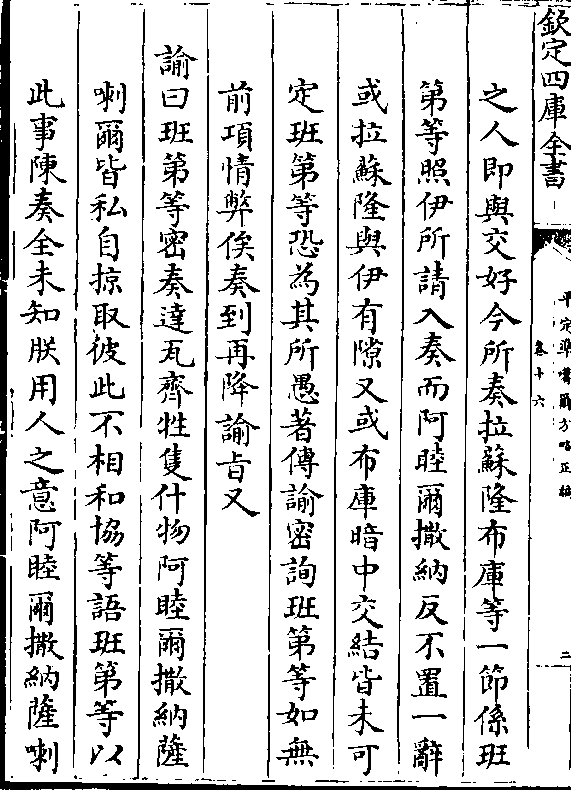 欽定四庫全書
平定準噶爾方略正編
卷十六
二
之人即與交好今所奏拉蘇隆布庫等一節係班
第等照伊所請入奏而阿睦爾撒納反不置一辭
或拉蘇隆與伊有隙又或布庫暗中交結皆未可
定班第等恐為其所愚著傳諭密詢班第等如無
前項情弊俟奏到再降諭旨又
諭曰班第等密奏達瓦齊牲隻什物阿睦爾撒納薩
喇爾皆私自掠取彼此不相和協等語班第等以
此事陳奏全未知朕用人之意阿睦爾撒納薩喇